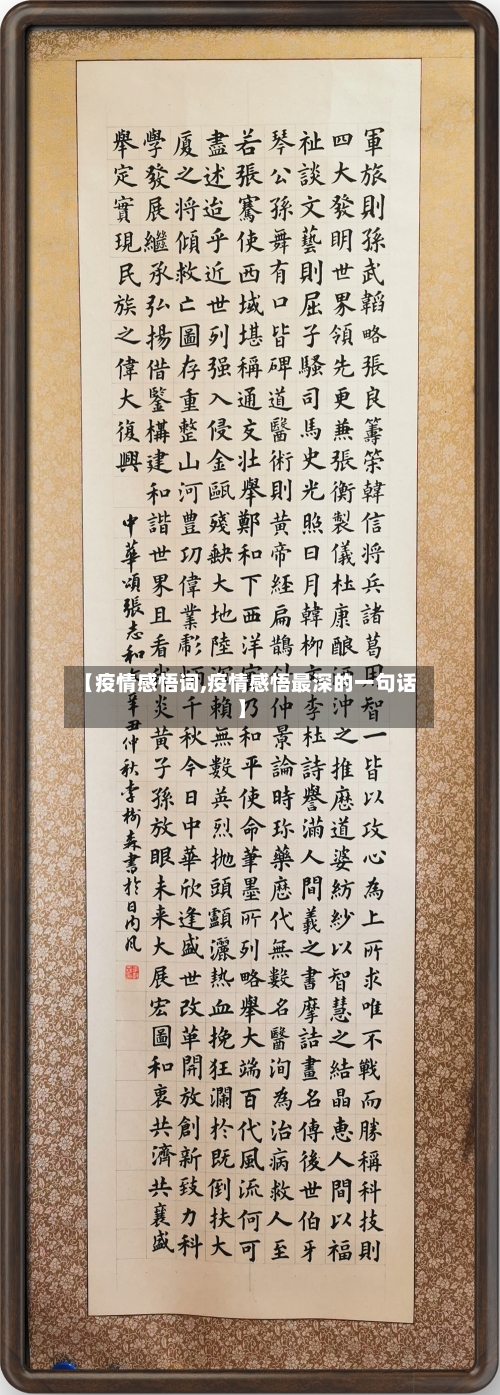 軍旅則孫武韜略張良籌策韓信將兵諸葛用智一皆以攻心為上所求唯不戰而勝稱科技則
四大發明世界領先更兼張衡製儀杜康釀酒沖之推曆道婆紡紗以智慧之結晶惠人間以福
祉談文藝則屈子騷司馬史光照日月韓柳李杜詩譽滿人間羲之書摩詰畫名傳後世伯牙
琴公孫舞有口皆碑道醫術則黃帝經扁鵲仲景論時珍藥歷代無數名醫洵為治病救人至
若張騫使西域堪稱通交壯舉鄭和下西洋乃和平使命筆墨所列略舉大端百代風流何可
盡述迨乎近世列强入侵金甌殘缺大地陸賴無數英烈抛頭顱灑熱血挽狂瀾於既倒扶大
廈之將傾救亡圖存重整山河豊功偉業彪炳千秋今日中華欣逢盛世改革開放創新致力科
學發展繼承弘揚借鑒構建和諧世界且看炎黃子孫放眼未来大展宏圖和衷共濟共襄盛
舉定實現民族之偉大復興
中華頌張志和辛丑仲秋李樹森書於日內风
【疫情感悟词,疫情感悟最深的一句话
】